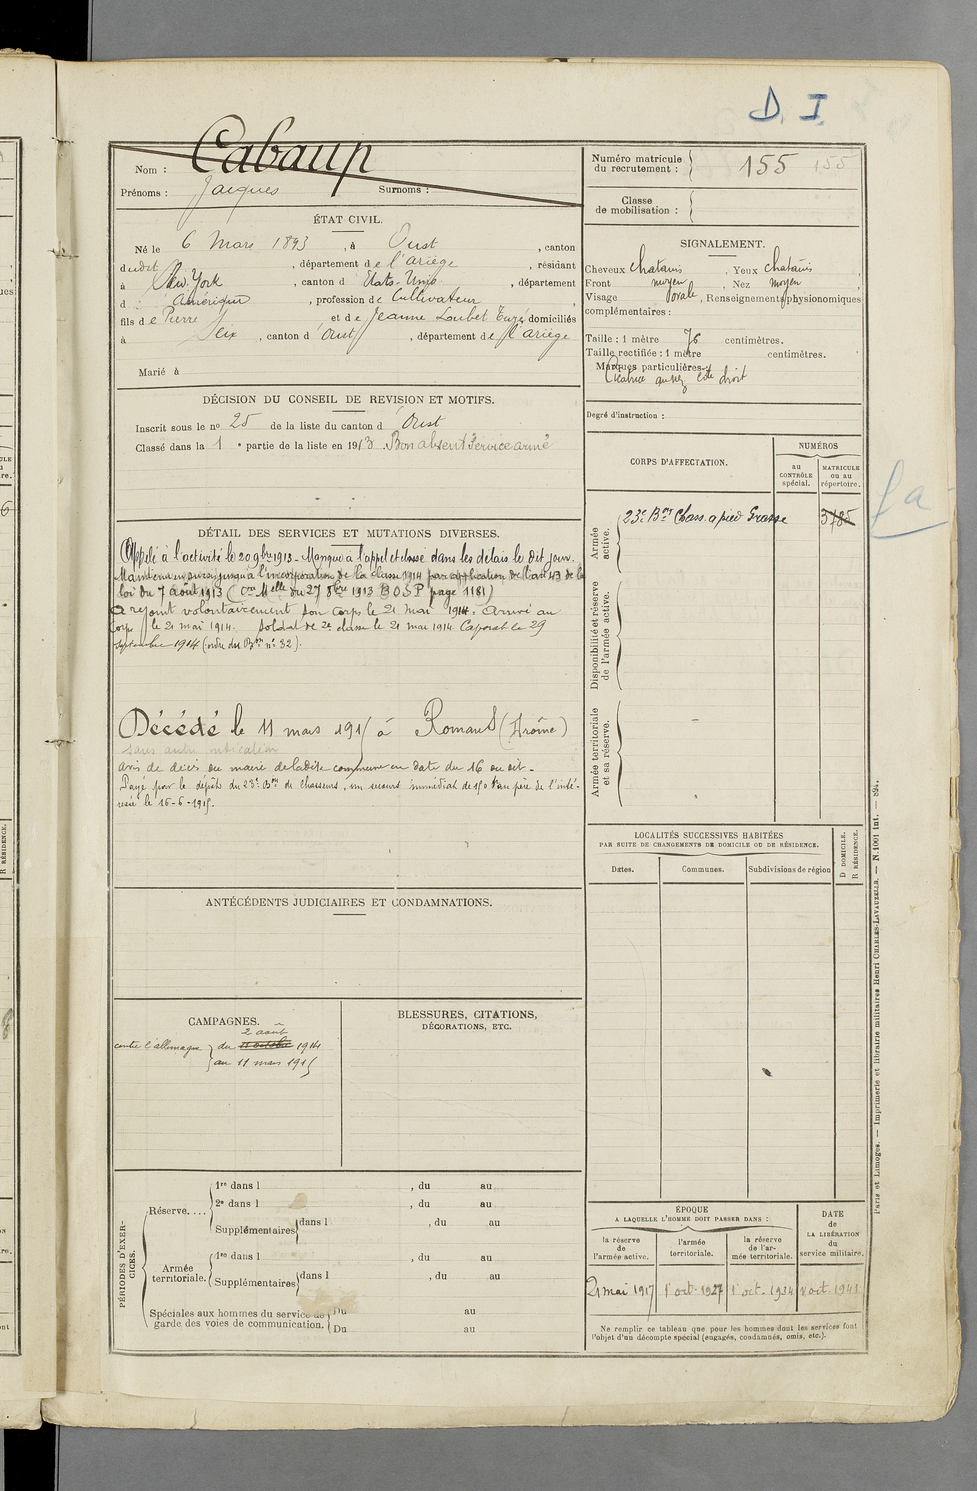 D. I.
Nom : Cabaup
Prénoms : Jacques Surnoms :
Numéro matricule du recrutement : 155 155
Classe de mobilisation :
ÉTAT CIVIL.
Né le 6 Mars 1893, à Oust, canton
dudit, département de l'ariège, résidant
à New. York, canton d Etats-Unis, département
d Amérique, profession de Cultivateur,
fils de Pierre et de Jeanne Loubet domiciliés
à Seix, canton d'Oust, département de l'ariège
Marié à
SIGNALEMENT.
Cheveux chatains, Yeux chatains
Front moyen, Nez moyen
Visage ovale, Renseignements physionomiques
complémentaires :
Taille : 1 mètre 76 centimètres.
Taille rectifiée : 1 mètre centimètres.
Marques particulières :
Cicatrice au nez côté droit
Degré d'instruction :
DÉCISION DU CONSEIL DE RÉVISION ET MOTIFS.
Inscrit sous le no 25 de la liste du canton d'Oust
Classé dans la 1e partie de la liste en 1913. Bon absent Service armé
CORPS D'AFFECTATION.
NUMÉROS
au CONTRÔLE spécial.
MATRICULE ou au répertoire.
Armée active.
23e Bon Chass. a pied Grasse 3785
Disponibilité et réserve de l'armée active.
Armée territoriale et sa réserve.
DÉTAIL DES SERVICES ET MUTATIONS DIVERSES.
Appelé à l'activité le 20 9bre 1913 - Manque à l'appel et classé dans les délais le dit jour.
Maintenu en sursis jusqu'à l'incorporation de la classe 1914 par application de l'art 43 de la
loi du 7 août 1913 (Cre Melle du 27 8bre 1913 B O S P page 1181)
A rejoint volontairement son Corps le 21 mai 1914. Arrivé au
Corps le 21 mai 1914. Soldat de 2e classe le 21 mai 1914. Caporal le 29
septembre 1914 (ordre du Bon no 32).
Décédé le 11 mars 1915 à Romans (Drôme)
sans autre indication
avis de décès du maire de ladite commune en date du 16 du dit -
Payé par le dépôt du 23e Bon de Chasseurs, un secours immédiat de 150 f au père de l'inté-
ressé le 16-6-1915.
LOCALITÉS SUCCESSIVES HABITÉES
PAR SUITE DE CHANGEMENTS DE DOMICILE OU DE RÉSIDENCE.
Dates.
Communes.
Subdivisions de région
D DOMICILE.
R RÉSIDENCE.
ANTÉCÉDENTS JUDICIAIRES ET CONDAMNATIONS.
CAMPAGNES.
2 août
contre l'allemagne du 11 octobre 1914
au 11 mars 1915
BLESSURES, CITATIONS,
DÉCORATIONS, ETC.
PÉRIODES D'EXERCICES.
Réserve....
1re dans l , du au
2e dans l , du au
Supplémentaires dans l , du au
Armée territoriale.
1re dans l , du au
Supplémentaires dans l , du au
Spéciales aux hommes du service de Du au
garde des voies de communication. Du au
ÉPOQUE
A LAQUELLE L'HOMME DOIT PASSER DANS :
la réserve de l'armée active.
l'armée territoriale.
la réserve de l'armée territoriale.
DATE de LA LIBÉRATION du service militaire.
21 mai 1917
1r oct. 1927
1r oct. 1934
1r oct. 1941
Ne remplir ce tableau que pour les hommes dont les services font
l'objet d'un décompte spécial (engagés, condamnés, omis, etc.).
Paris et Limoges. — Imprimerie et librairie militaires Henri CHARLES-LAVAUZELLE. — N. 1001 int. — 894.